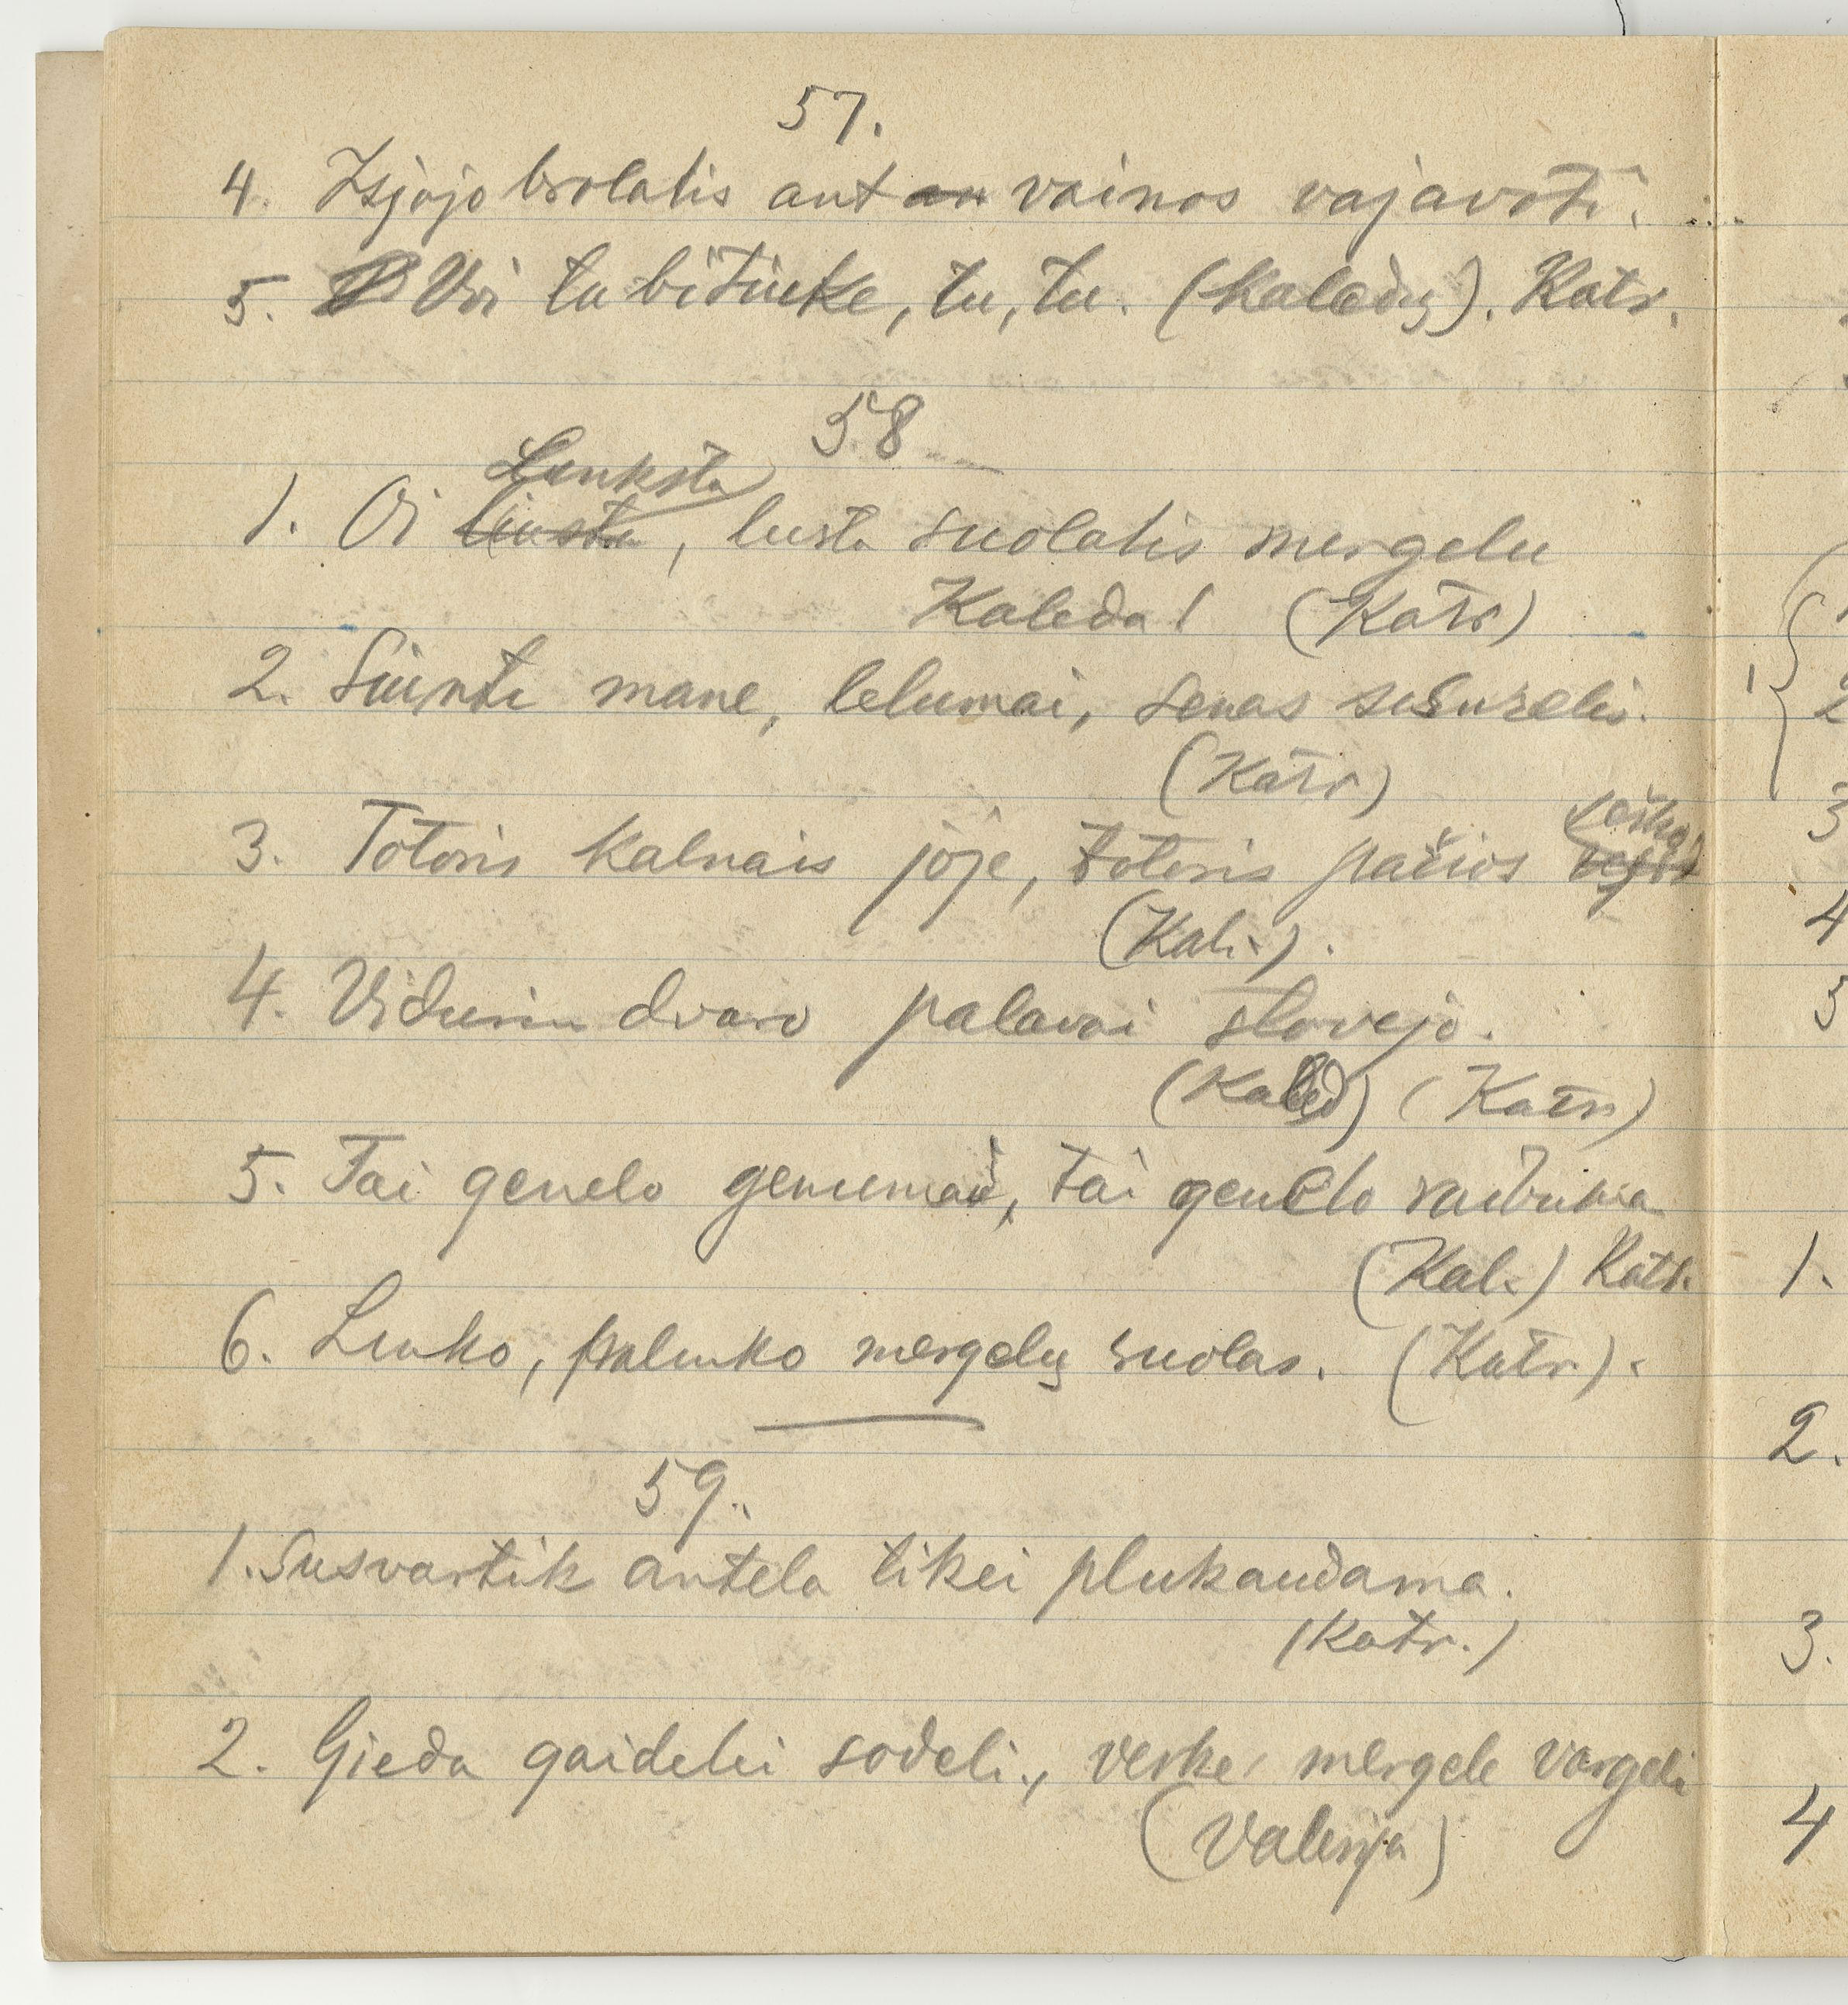 57.
4. Isjojo brolatis ant an vainos vajavoti.
5. Uoi tu bitiuke, tu, tu. (Kaledų). Katr.
58
Lunksta
1. Oi liusta, lusta suolatis mergelu
Kaleda! (Katr)
2. Siunte mane, lelumai, senas sušurelis.
(Katr)
3. Totoris kalnais joje, totoris pačios
(Kal.).
4. Viduriu dvaro palavai stovejo.
(Kaled) (Katr)
5. Tai genelo genumai, tai genelo raibuma
(Kal.) Katr.
6. Linko, palinko mergelų suolas. (Katr).
59.
1. Susvartik antela tikei plukaudama.
(Katr.)
2. Gieda gaidelei sodeli., verke mergele vargeli
(Valerija)
1.
2
3
4
5
1.
2.
3.
4